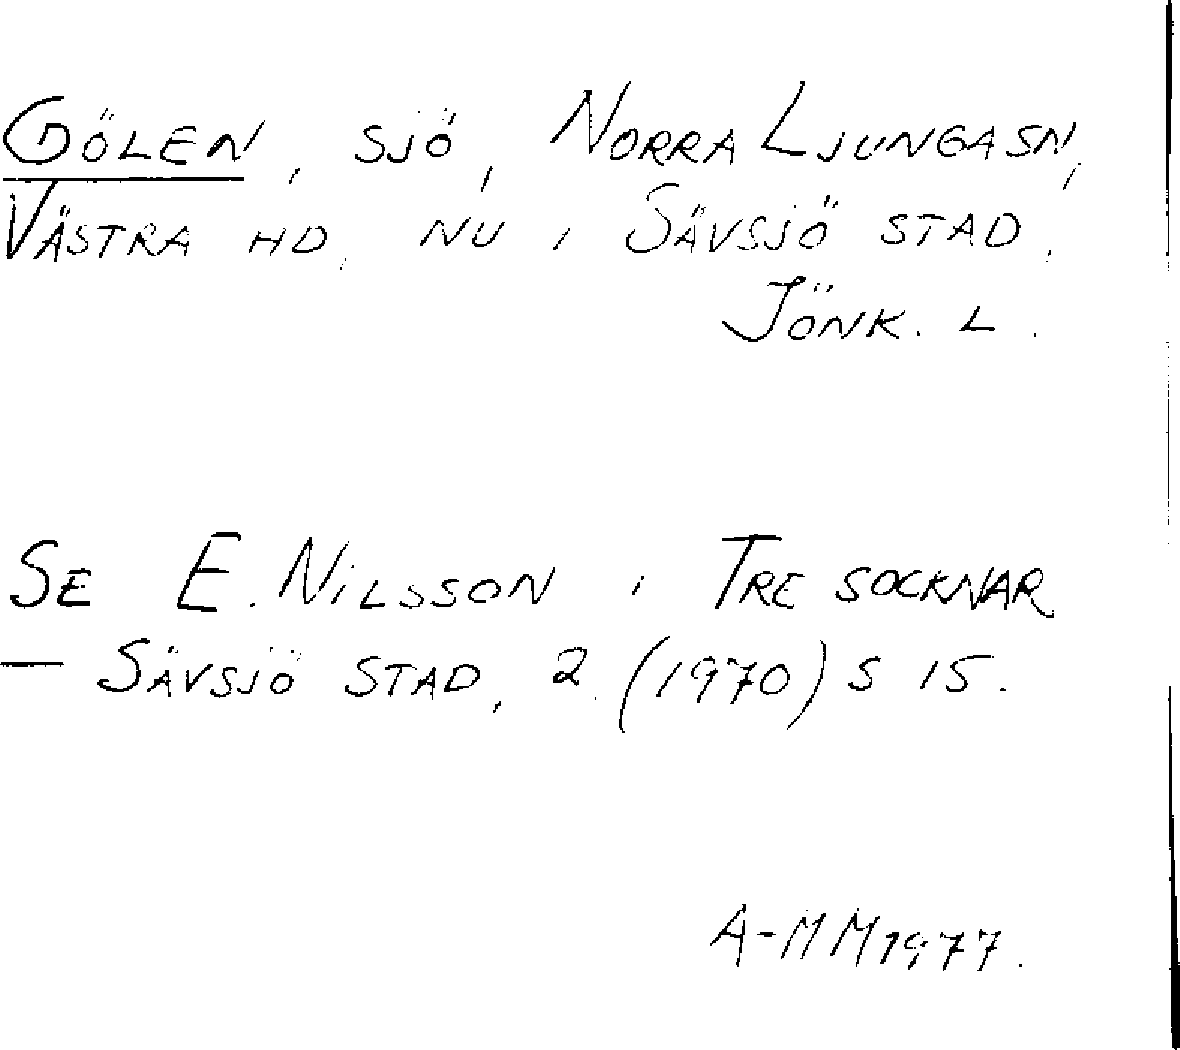 GÖLEN, SJÖ, NORRA LJUNGA SN,
VÄSTRA HD, NU I SÄVSJÖ STAD,
JÖNK. L.
SE E. NILSSON I TRE SOCKNAR
— SÄVSJÖ STAD, 2. (1970) S 15.
A-MM 1977.